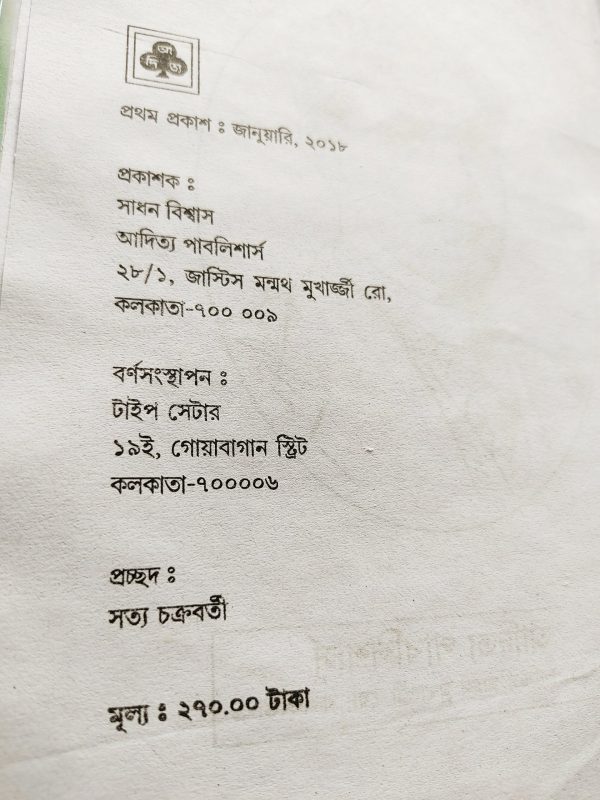 আ
দি
ত্য
প্রথম প্রকাশ : জানুয়ারি, ২০১৮
প্রকাশক :
সাধন বিশ্বাস
আদিত্য পাবলিশার্স
২৮/১, জাস্টিস মন্মথ মুখার্জ্জী রো,
কলকাতা-৭০০ ০০৯
বর্ণসংস্থাপন :
টাইপ সেটার
১৯ই, গোয়াবাগান স্ট্রিট
কলকাতা-৭০০০০৬
প্রচ্ছদ :
সত্য চক্রবর্তী
মূল্য : ২৭০.০০ টাকা